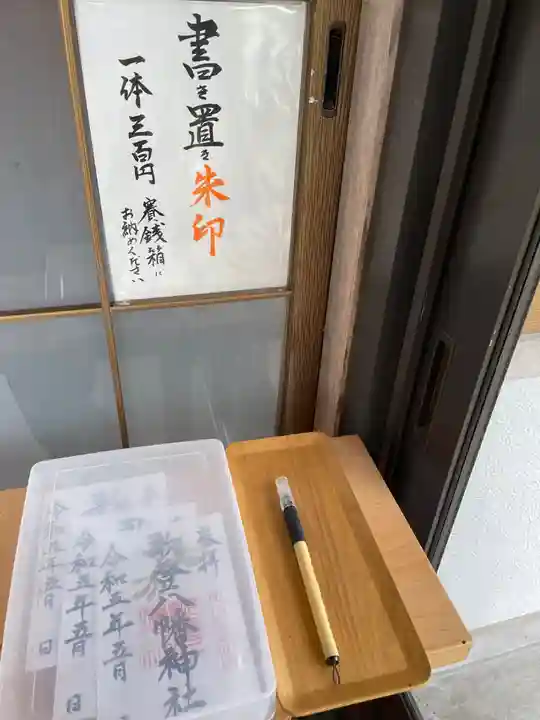 書き置き朱印
一体三百円
賽銭箱に
お納めください
奉拝
八幡神社
令和五年五月 日
令和五年五月 日